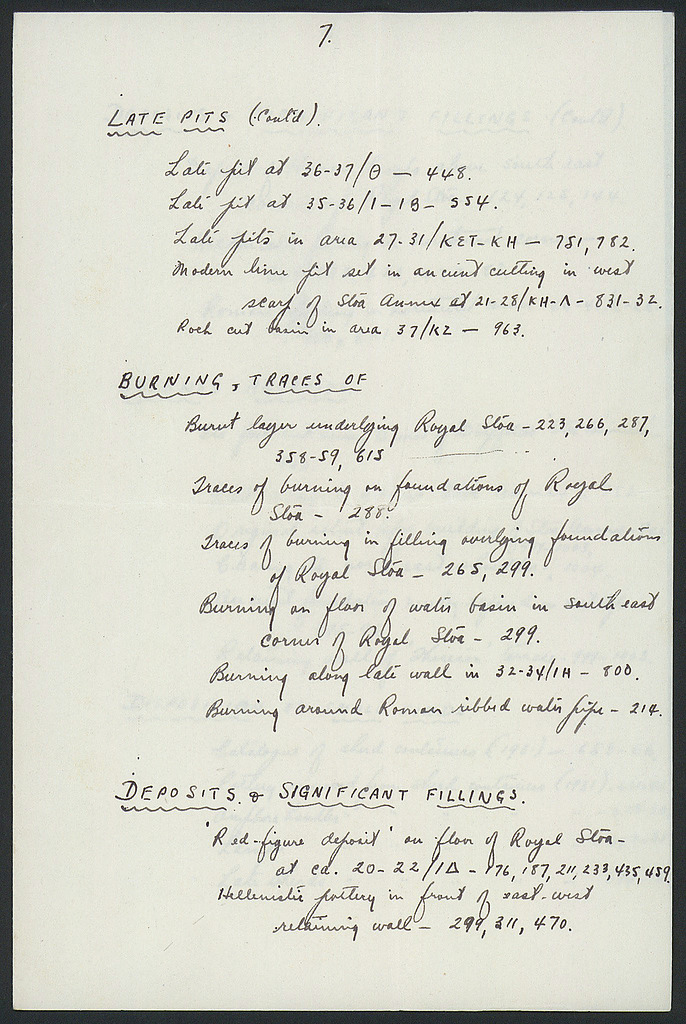 7.
LATE PITS (Cont'd).
Late pit at 36-37/Θ — 448.
Late pit at 35-36/I-IB- 554.
Late pits in area 27-31/KET-KH — 751, 782.
Modern lime pit set in ancient cutting in west
scarp of Stoa Annex at 21-28/KH-Λ - 831-32.
Rock cut basin in area 37/KZ — 963.
BURNING, TRACES OF
Burnt layer underlying Royal Stoa - 223, 266, 287,
358-59, 615
Traces of burning on foundations of Royal
Stoa - 288.
Traces of burning in filling overlying foundations
of Royal Stoa - 265, 299.
Burning on floor of water basin in south east
corner of Royal Stoa - 299.
Burning along late wall in 32-34/IH - 800.
Burning around Roman ribbed water pipe - 214.
DEPOSITS & SIGNIFICANT FILLINGS.
'Red-figure deposit' on floor of Royal Stoa -
at ca. 20-22/IΔ - 176, 187, 211, 233, 435, 459.
Hellenistic pottery in front of east-west
retaining wall - 299, 311, 470.